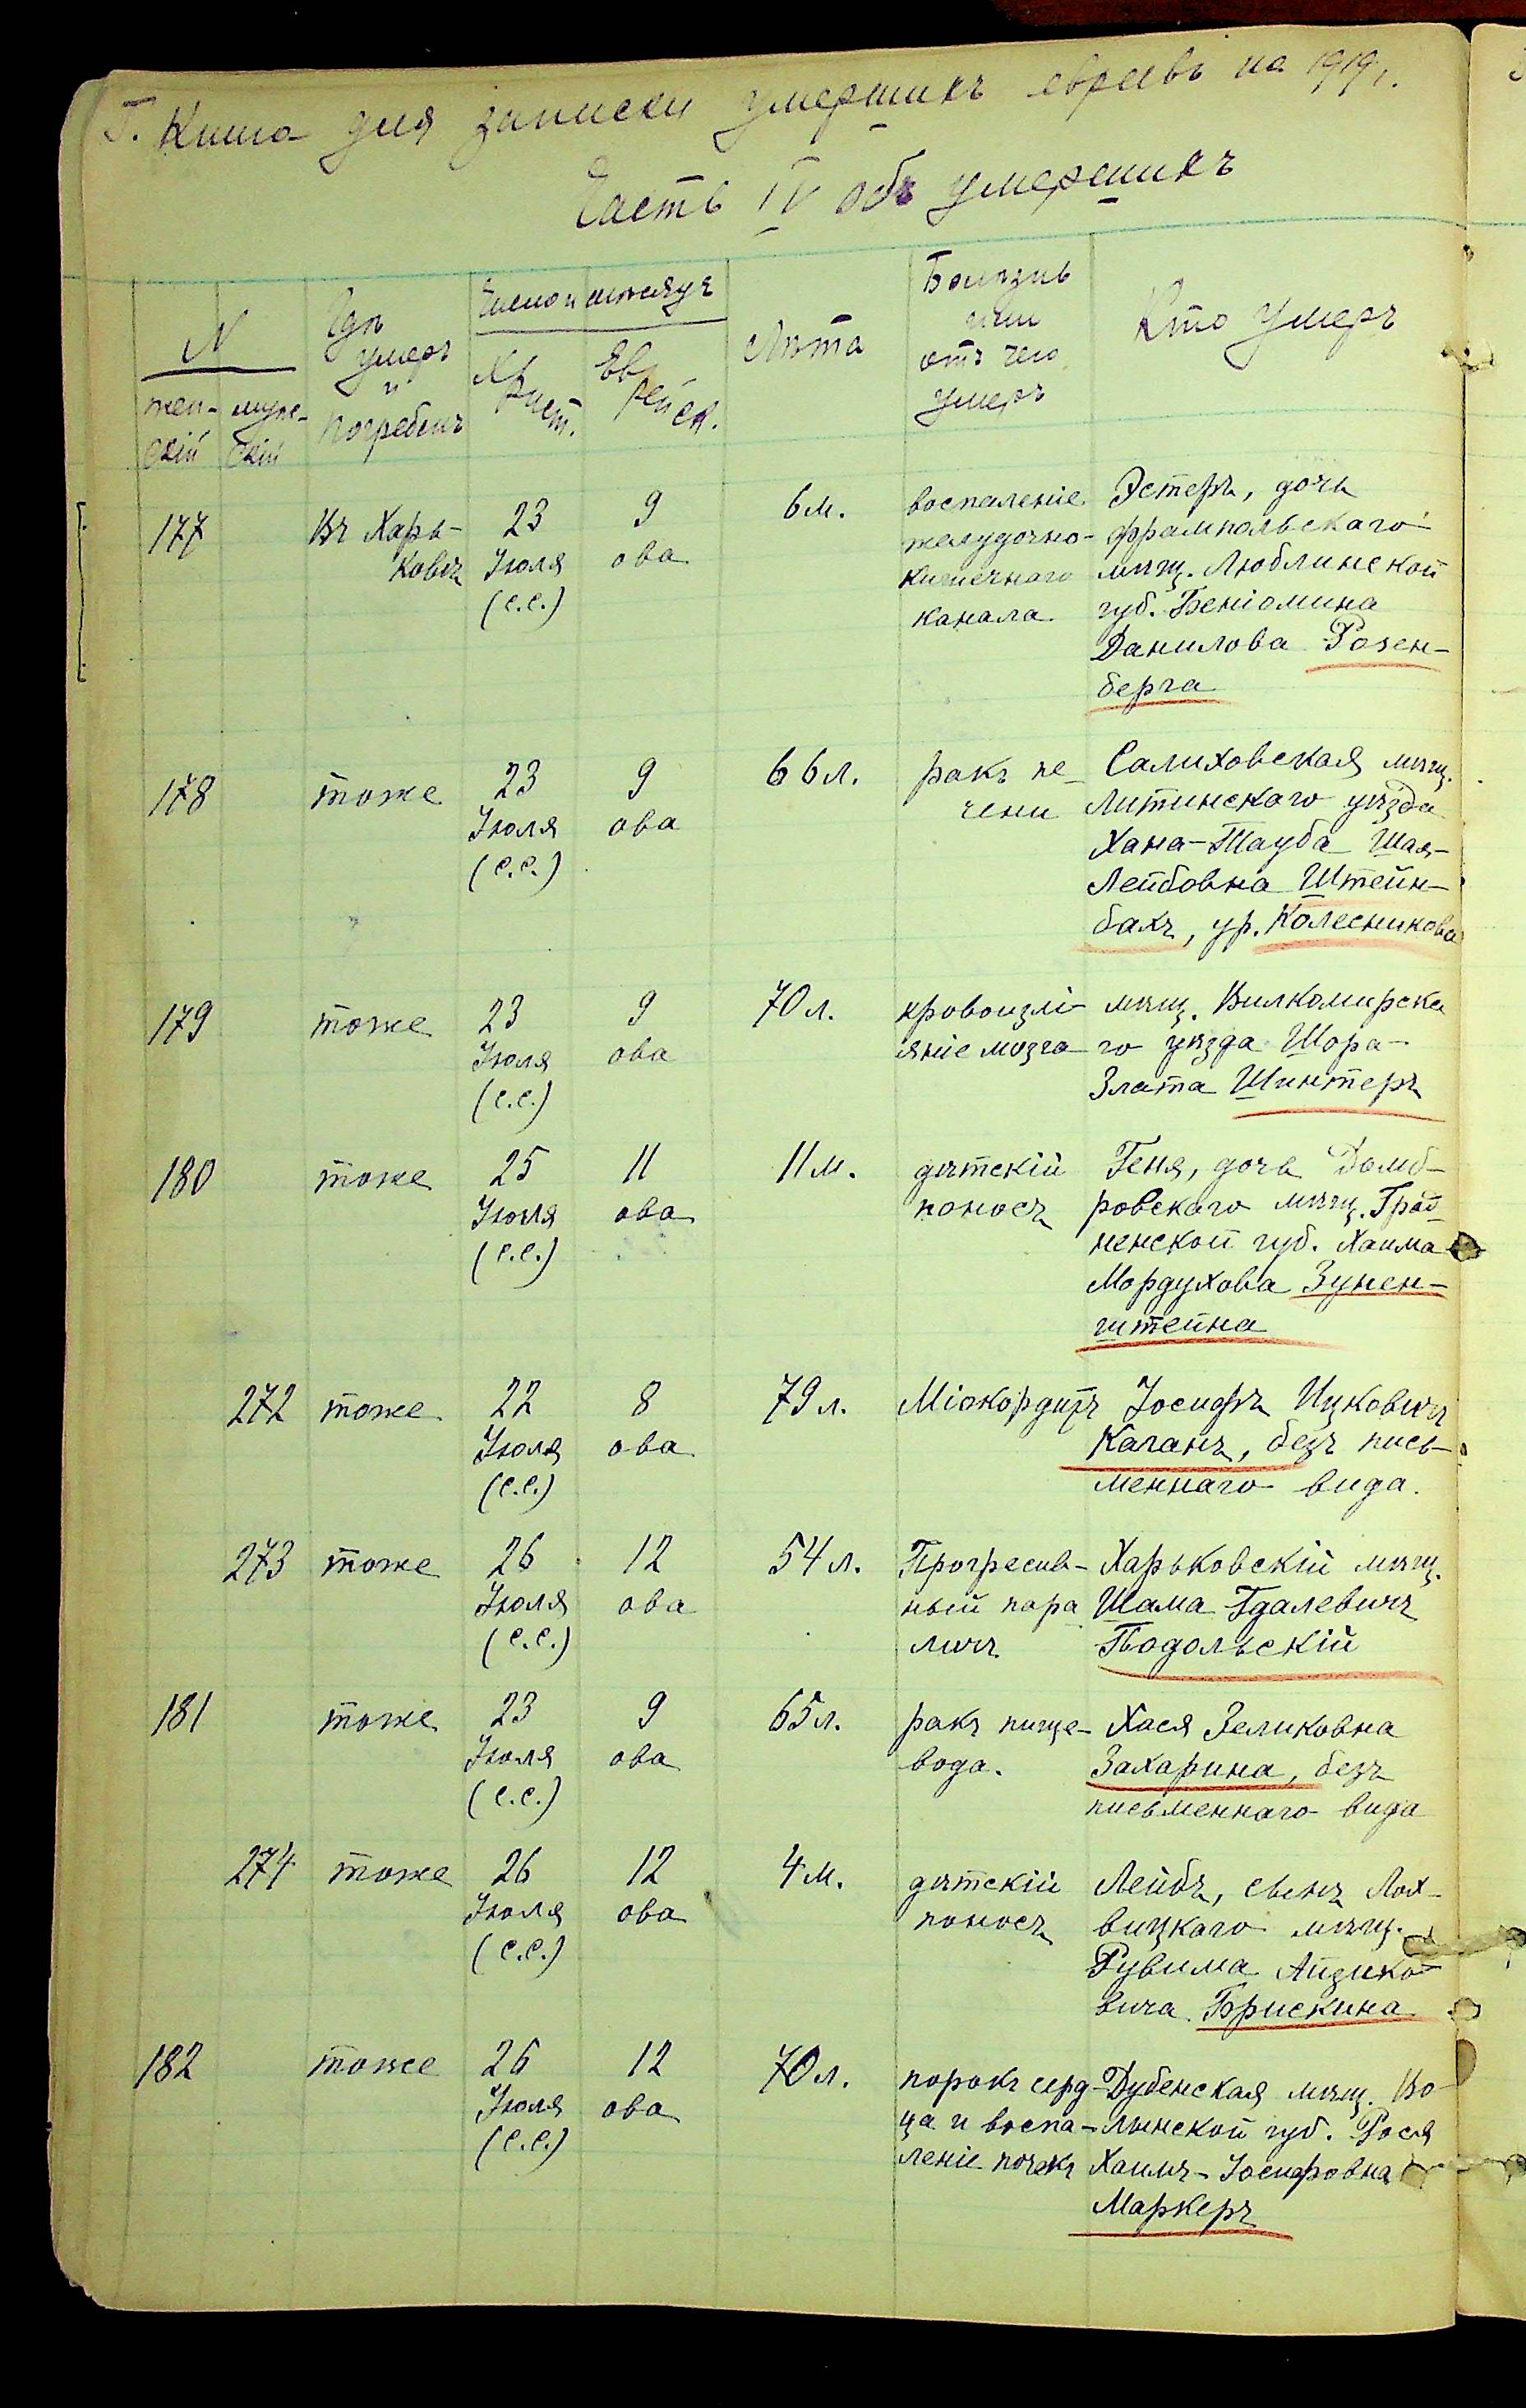 Г. Книга для записки умершихъ евреевъ на 1919 г.
Часть IV объ умершихъ
N
жен-
скій
муж-
скій
Гдѣ
умеръ
и
погребенъ
Число и мѣсяцъ
Христ.
Еврейск.
Лѣта
Болѣзнь
или
отъ чего
умеръ
Кто умеръ
177
Въ Харь-
ковѣ
23
Іюля
(с.с.)
9
ова
6 м.
воспаленіе
желудочно-
кишечнаго
канала
Эстеръ, дочь
Фрампольскаго
мѣщ. Люблинской
губ. Беніомина
Данилова Розен-
берга
178
тоже
23
Іюля
(с.с.)
9
ова
66 л.
ракъ пе-
чени
Салиховская мѣщ.
Литинскаго уѣзда
Хана-Тауба Шая-
Лейбовна Штейн-
бахъ, ур. Колесникова
179
тоже
23
Іюля
(с.с.)
9
ова
70 л.
кровоизлі-
яніе мозга
мѣщ. Вилкомирска
го уѣзда Шора-
Злата Шинтеръ
180
тоже
25
Іюля
(с.с.)
11
ова
11 м.
дѣтскій
поносъ
Геня, дочь Домб-
ровскаго мѣщ. Грод-
ненской губ. Хаима
Мордухова Зунен-
штейна
272
тоже
22
Іюля
(с.с.)
8
ова
79 л.
Міокордитъ
Іосифъ Ицковичъ
Каганъ, безъ пись-
меннаго вида.
273
тоже
26
Іюля
(с.с.)
12
ова
54 л.
Прогресив-
ный пора
личъ
Харьковскій мѣщ.
Шама Гдалевичъ
Подольскій
181
тоже
23
Іюля
(с.с.)
9
ова
65 л.
ракъ пище-
вода.
Хася Зеликовна
Захарина, безъ
письменнаго вида
274
тоже
26
Іюля
(с.с.)
12
ова
4 м.
дѣтскій
поносъ
Лейбъ, сынъ Лох-
вицкаго мѣщ.
Рувима Айзико-
вича Брискина
182
тоже
26
Іюля
(с.с.)
12
ова
70 л.
порокъ серд-
ца и воспа-
леніе почекъ
Дубенская мѣщ. Во-
лынской губ. Рося
Хаимъ-Іосифовна
Маркеръ